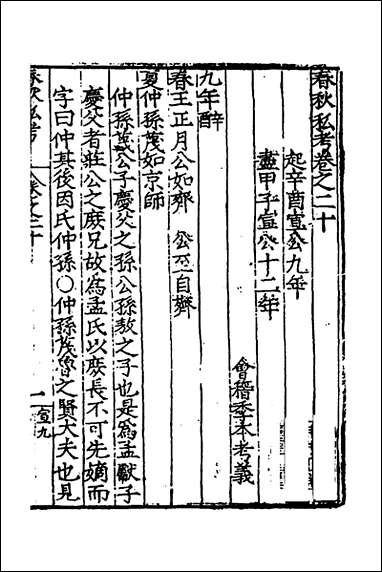 春秋私考卷之二十
起辛酉宣公九年
盡甲子宣公十二年
會稽季本考義
九年辥
春王正月公如齊 公至自齊
夏仲孫蔑如京師
仲孫蔑公子慶父之孫公孫敖之子也是為孟獻子
慶父者莊公之庶兄故為孟氏以庶長不可先嫡而
字曰仲其後因氏仲孫○仲孫蔑魯之賢大夫也見
春秋私考 卷之二十 一 宣九